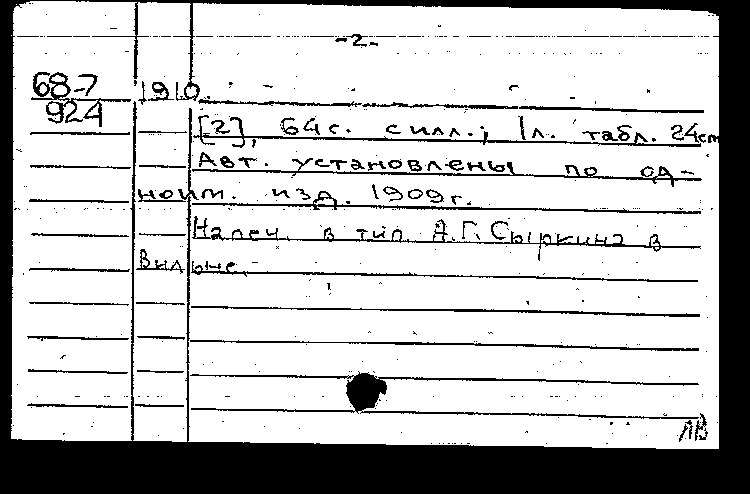 -2-
68-7 1910.
924
[2], 64 с. с илл.; 1 л. табл. 24 см
Авт. установлены по од-
ноим. изд. 1909 г.
Напеч. в тип. А.Г. Сыркина в
Вильне.
ЛВ